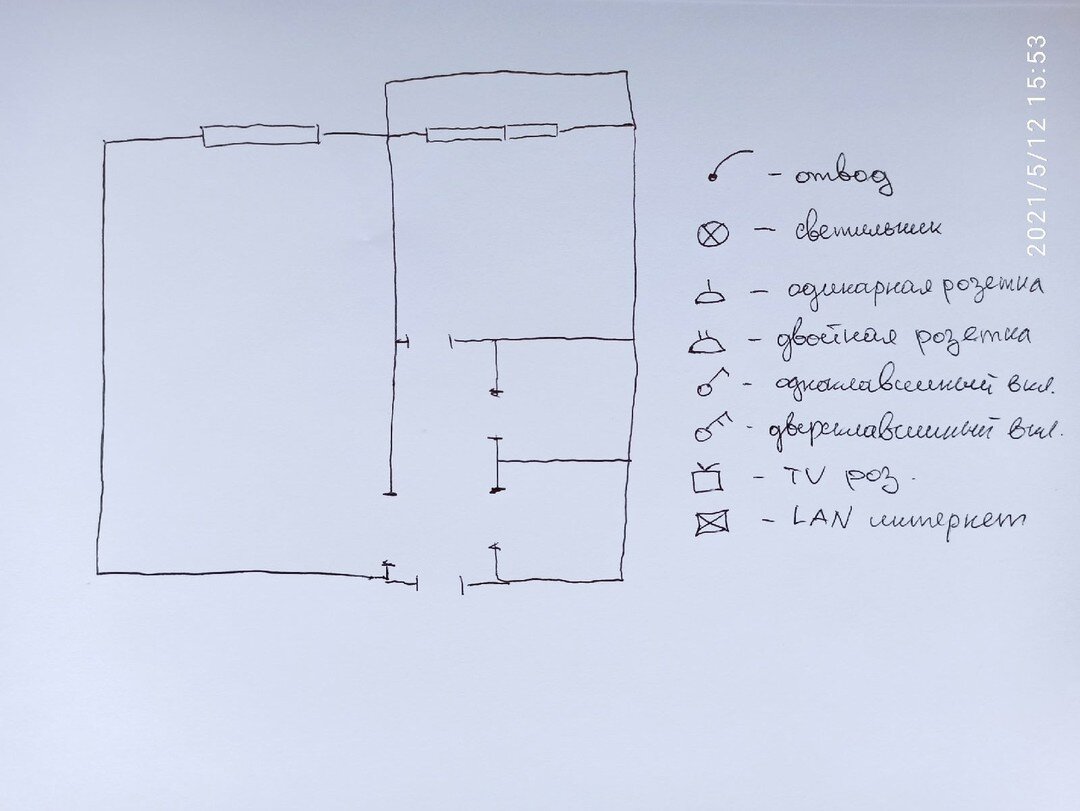 2021/5/12 15:53
- отвод
- светильник
- одинарная розетка
- двойная розетка
- одноклавишный вкл.
- двухклавишный вкл.
- TV роз.
- LAN интернет